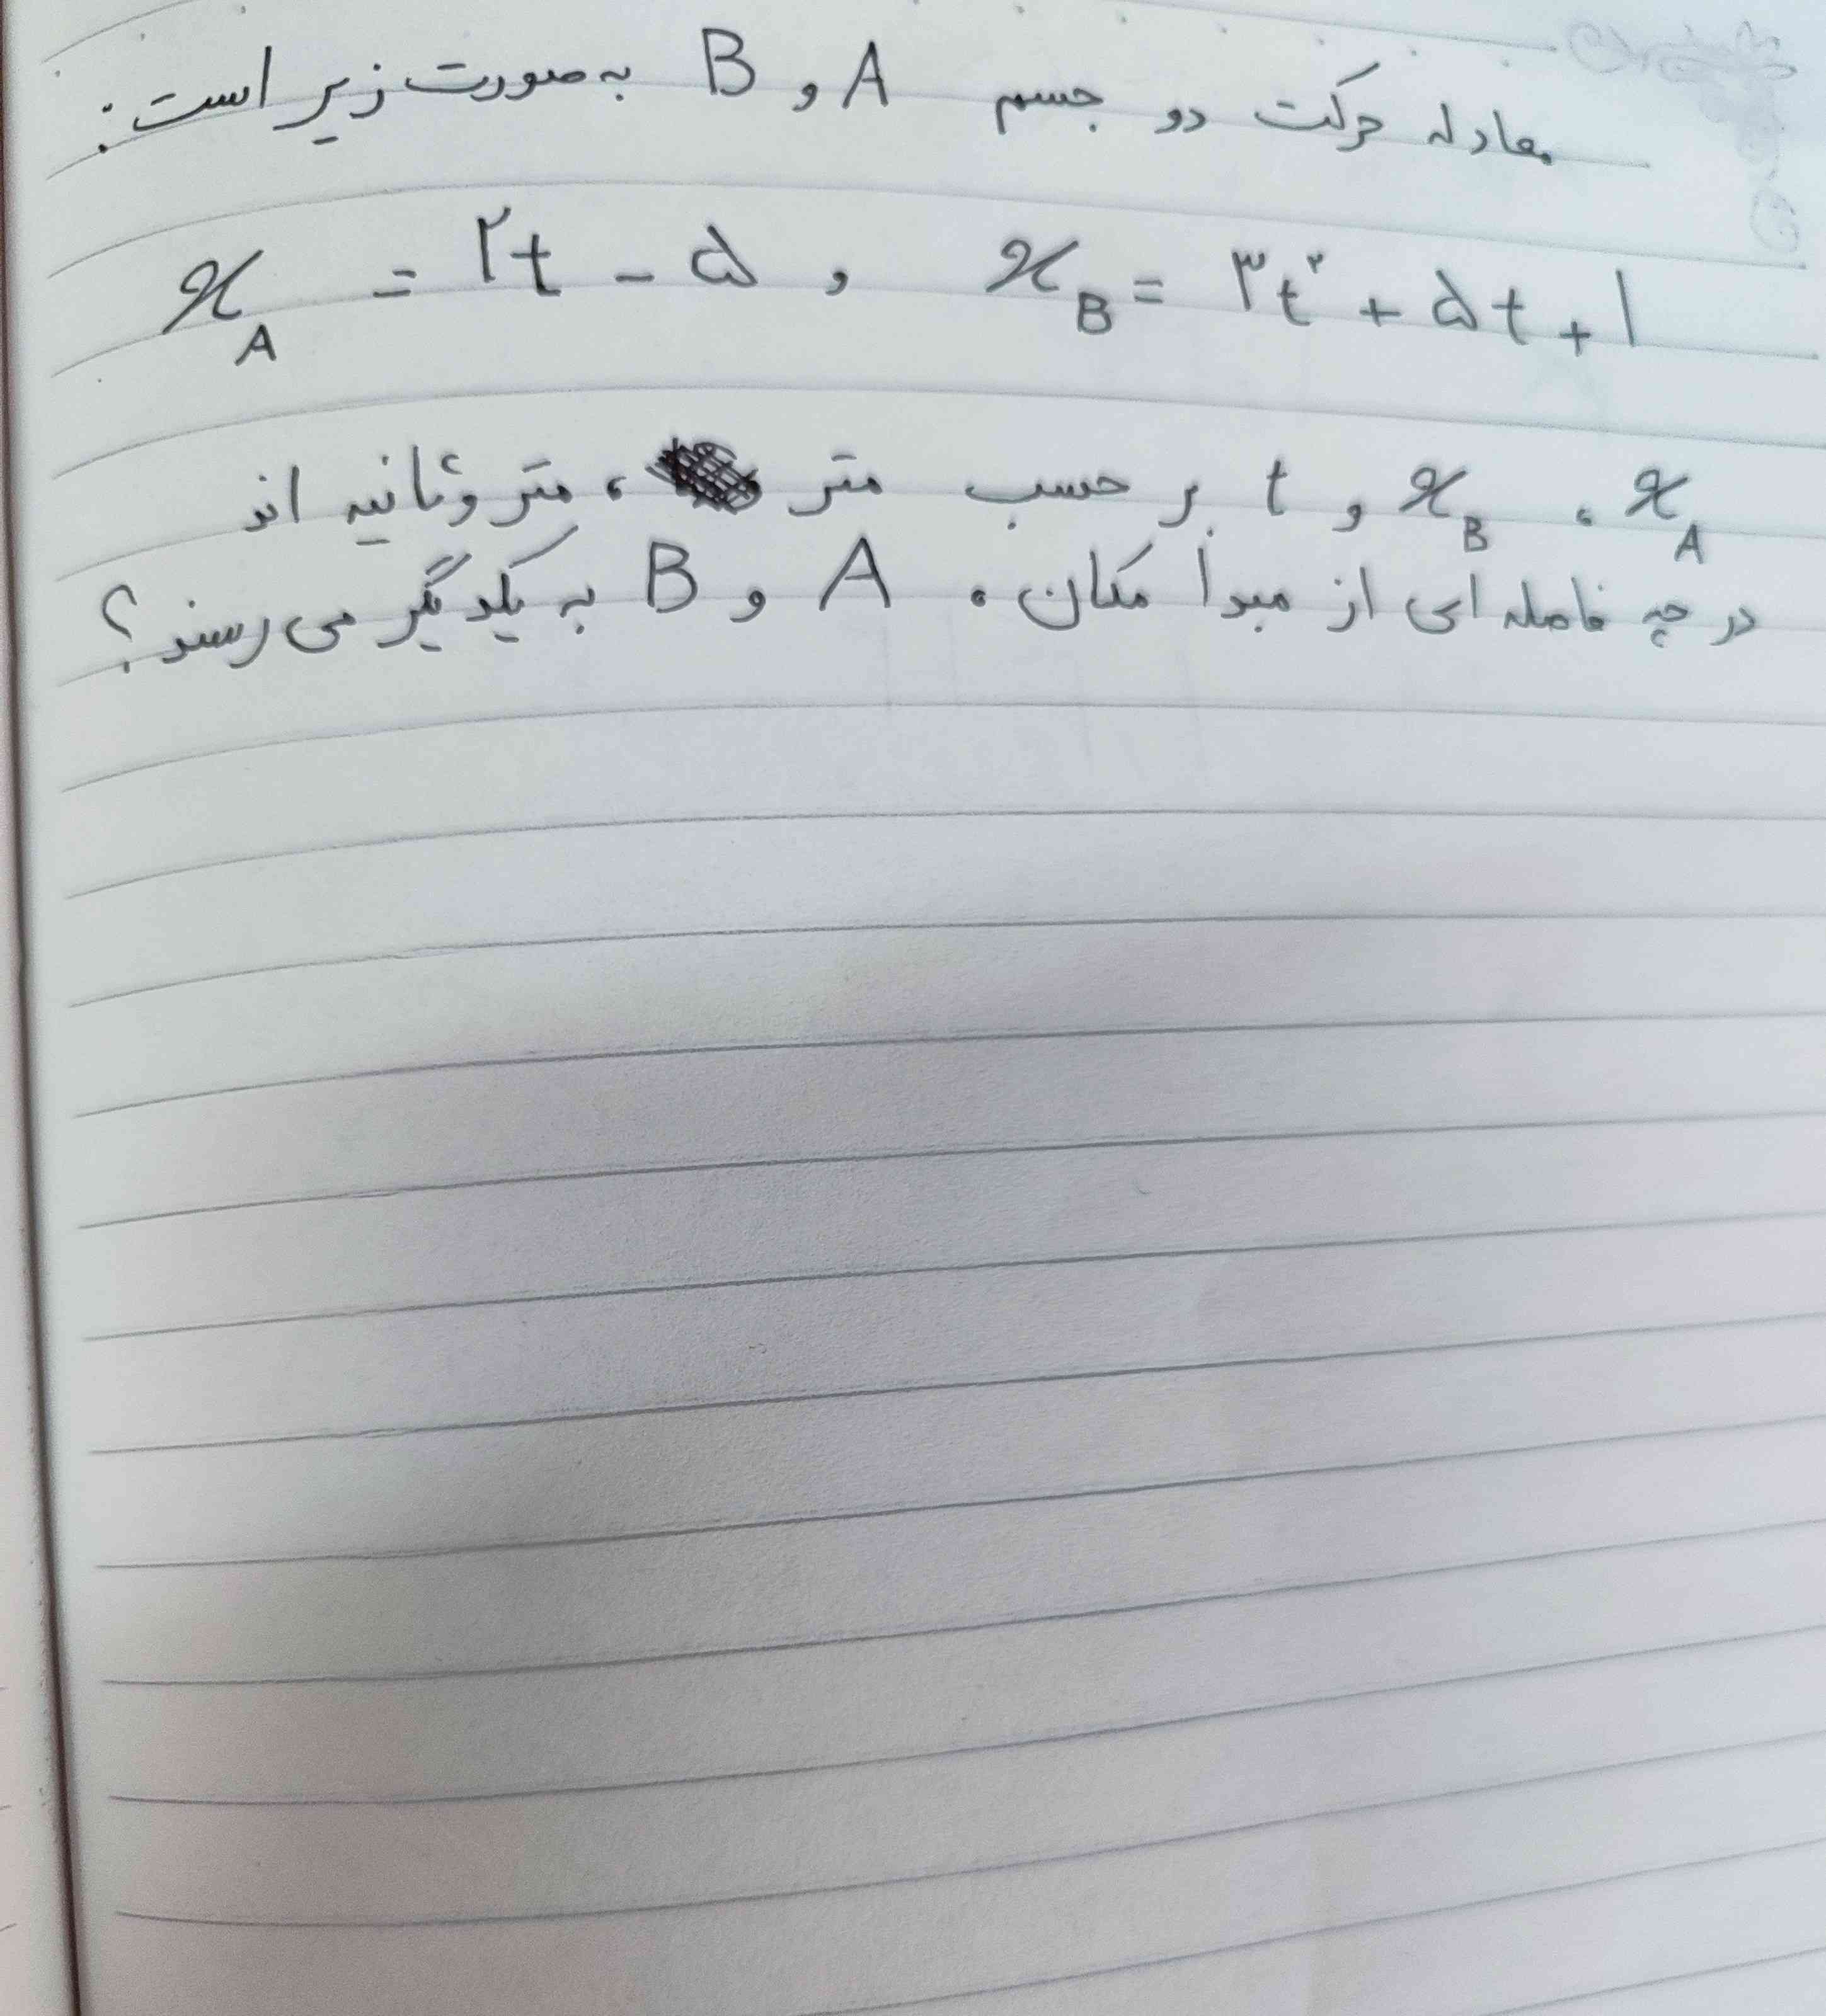 معادله حرکت دو جسم A و B به صورت زیر است:
x_A = ۲t - ۵ , x_B = ۳t² + ۵t + ۱
x_A ، x_B و t بر حسب متر ، متر و ثانیه اند
در چه فاصله ای از مبدأ مکان، A و B به یکدیگر می رسند؟